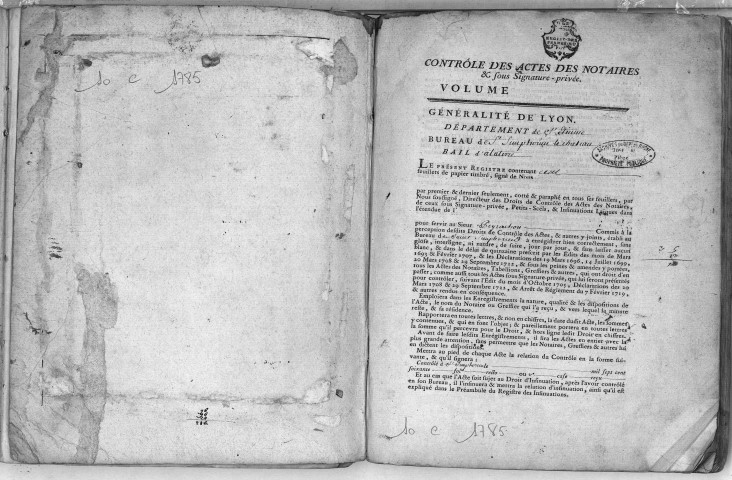 10 C 1785
CONTRÔLE DES ACTES DES NOTAIRES
& sous Signature-privée.
VOLUME
GÉNÉRALITÉ DE LYON.
DÉPARTEMENT de St Etienne
BUREAU de St Simphorien le chateau
BAIL d'alaterre
LE PRÉSENT REGISTRE contenant cent
feuillets de papier timbré, signé de Nous
par premier & dernier seulement, cotté & paraphé en tous ses feuillets, par
Nous soussigné, Directeur des Droits de Contrôle des Actes des Notaires,
de ceux sous Signature-privée, Petits-Scels, & Insinuations Laïques dans
l'étendue de l'
pour servir au Sieur Commis à la
perception desdits Droits de Contrôle des Actes, & autres y joints, établi au
Bureau de Saint Simphorien à enregistrer bien correctement, sans
glose, interligne, ni rature, de suite, jour par jour, & sans laisser aucun
blanc, & dans le délai de quinzaine prescrit par les Edits des mois de Mars
1693 & Février 1707, & les Déclarations des 19 Mars 1696, 14 Juillet 1699,
20 Mars 1708 & 29 Septembre 1722, & sous les peines & amendes y portées,
tous les Actes des Notaires, Tabellions, Greffiers & autres, qui ont droit d'en
passer, comme aussi tous les Actes sous Signature-privée, qui lui seront présentés
pour contrôler, suivant l'Edit du mois d'Octobre 1705, Déclarations des 20
Mars 1708 & 29 Septembre 1722, & Arrêt de Réglement du 7 Février 1719,
& autres rendus en conséquence.
Emploiera dans les Enregistrements la nature, qualité & les dispositions de
l'Acte, le nom du Notaire ou Greffier qui l'a reçu, & vers lequel la minute
reste, & sa résidence.
Rapportera en toutes lettres, & non en chiffres, la date dudit Acte, les sommes
y contenues, & qui en font l'objet; & pareillement portera en toutes lettres
la somme qu'il percevra pour le Droit, & hors ligne ledit Droit en chiffres.
Avant de faire lesdits Enregistrements, il lira les Actes en entier avec la
plus grande attention, sans permettre que les Notaires, Greffiers & autres lui
en dictent les dispositions.
Mettra au pied de chaque Acte la relation du Contrôle en la forme suivante, & qu'il signera:
Contrôlé à St Simphorien le mil sept cent
soixante fol. recto ou vo. case reçu
Et au cas que l'Acte soit sujet au Droit d'Insinuation, après l'avoir contrôlé
en son Bureau, il l'insinuera & mettra la relation d'insinuation, ainsi qu'il est
expliqué dans le Préambule du Registre des Insinuations.
10 C 1785